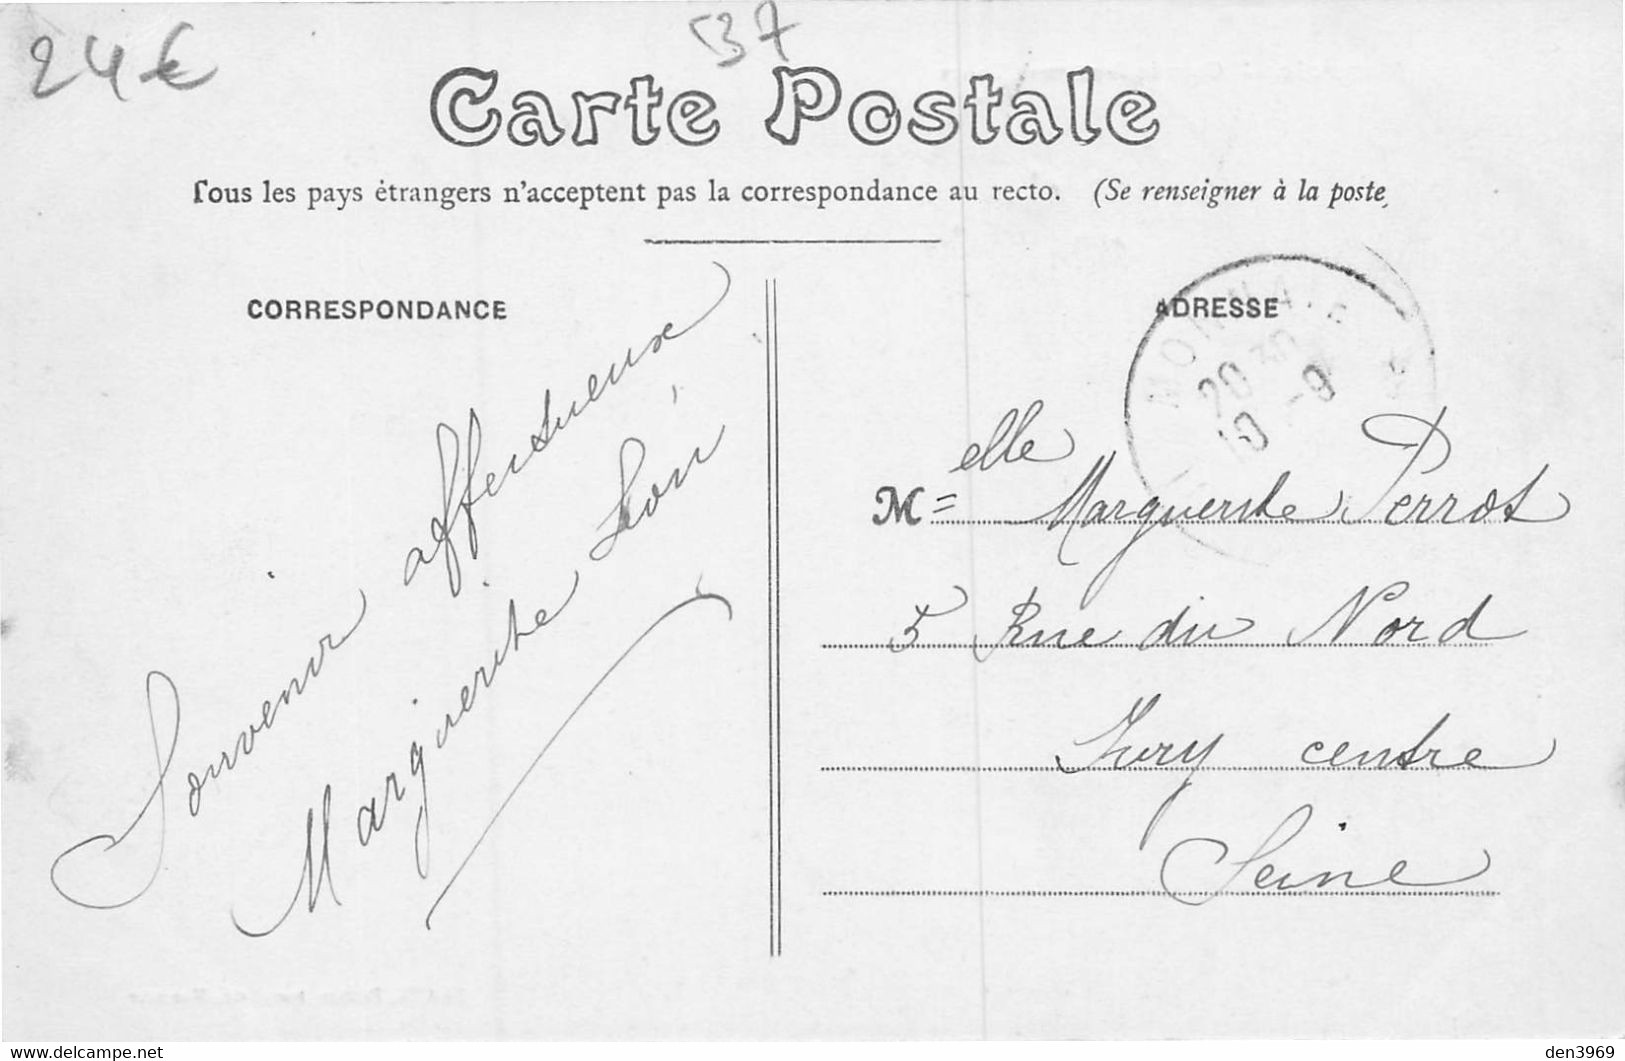 24€
37
Carte Postale
Tous les pays étrangers n'acceptent pas la correspondance au recto. (Se renseigner à la poste
CORRESPONDANCE
Souvenir affectueux
Marguerite
ADRESSE
MONNAIE
20 30
10 -9
Melle Marguerite Perrot
5 Rue du Nord
Ivry centre
Seine
www.delcampe.net
den3969